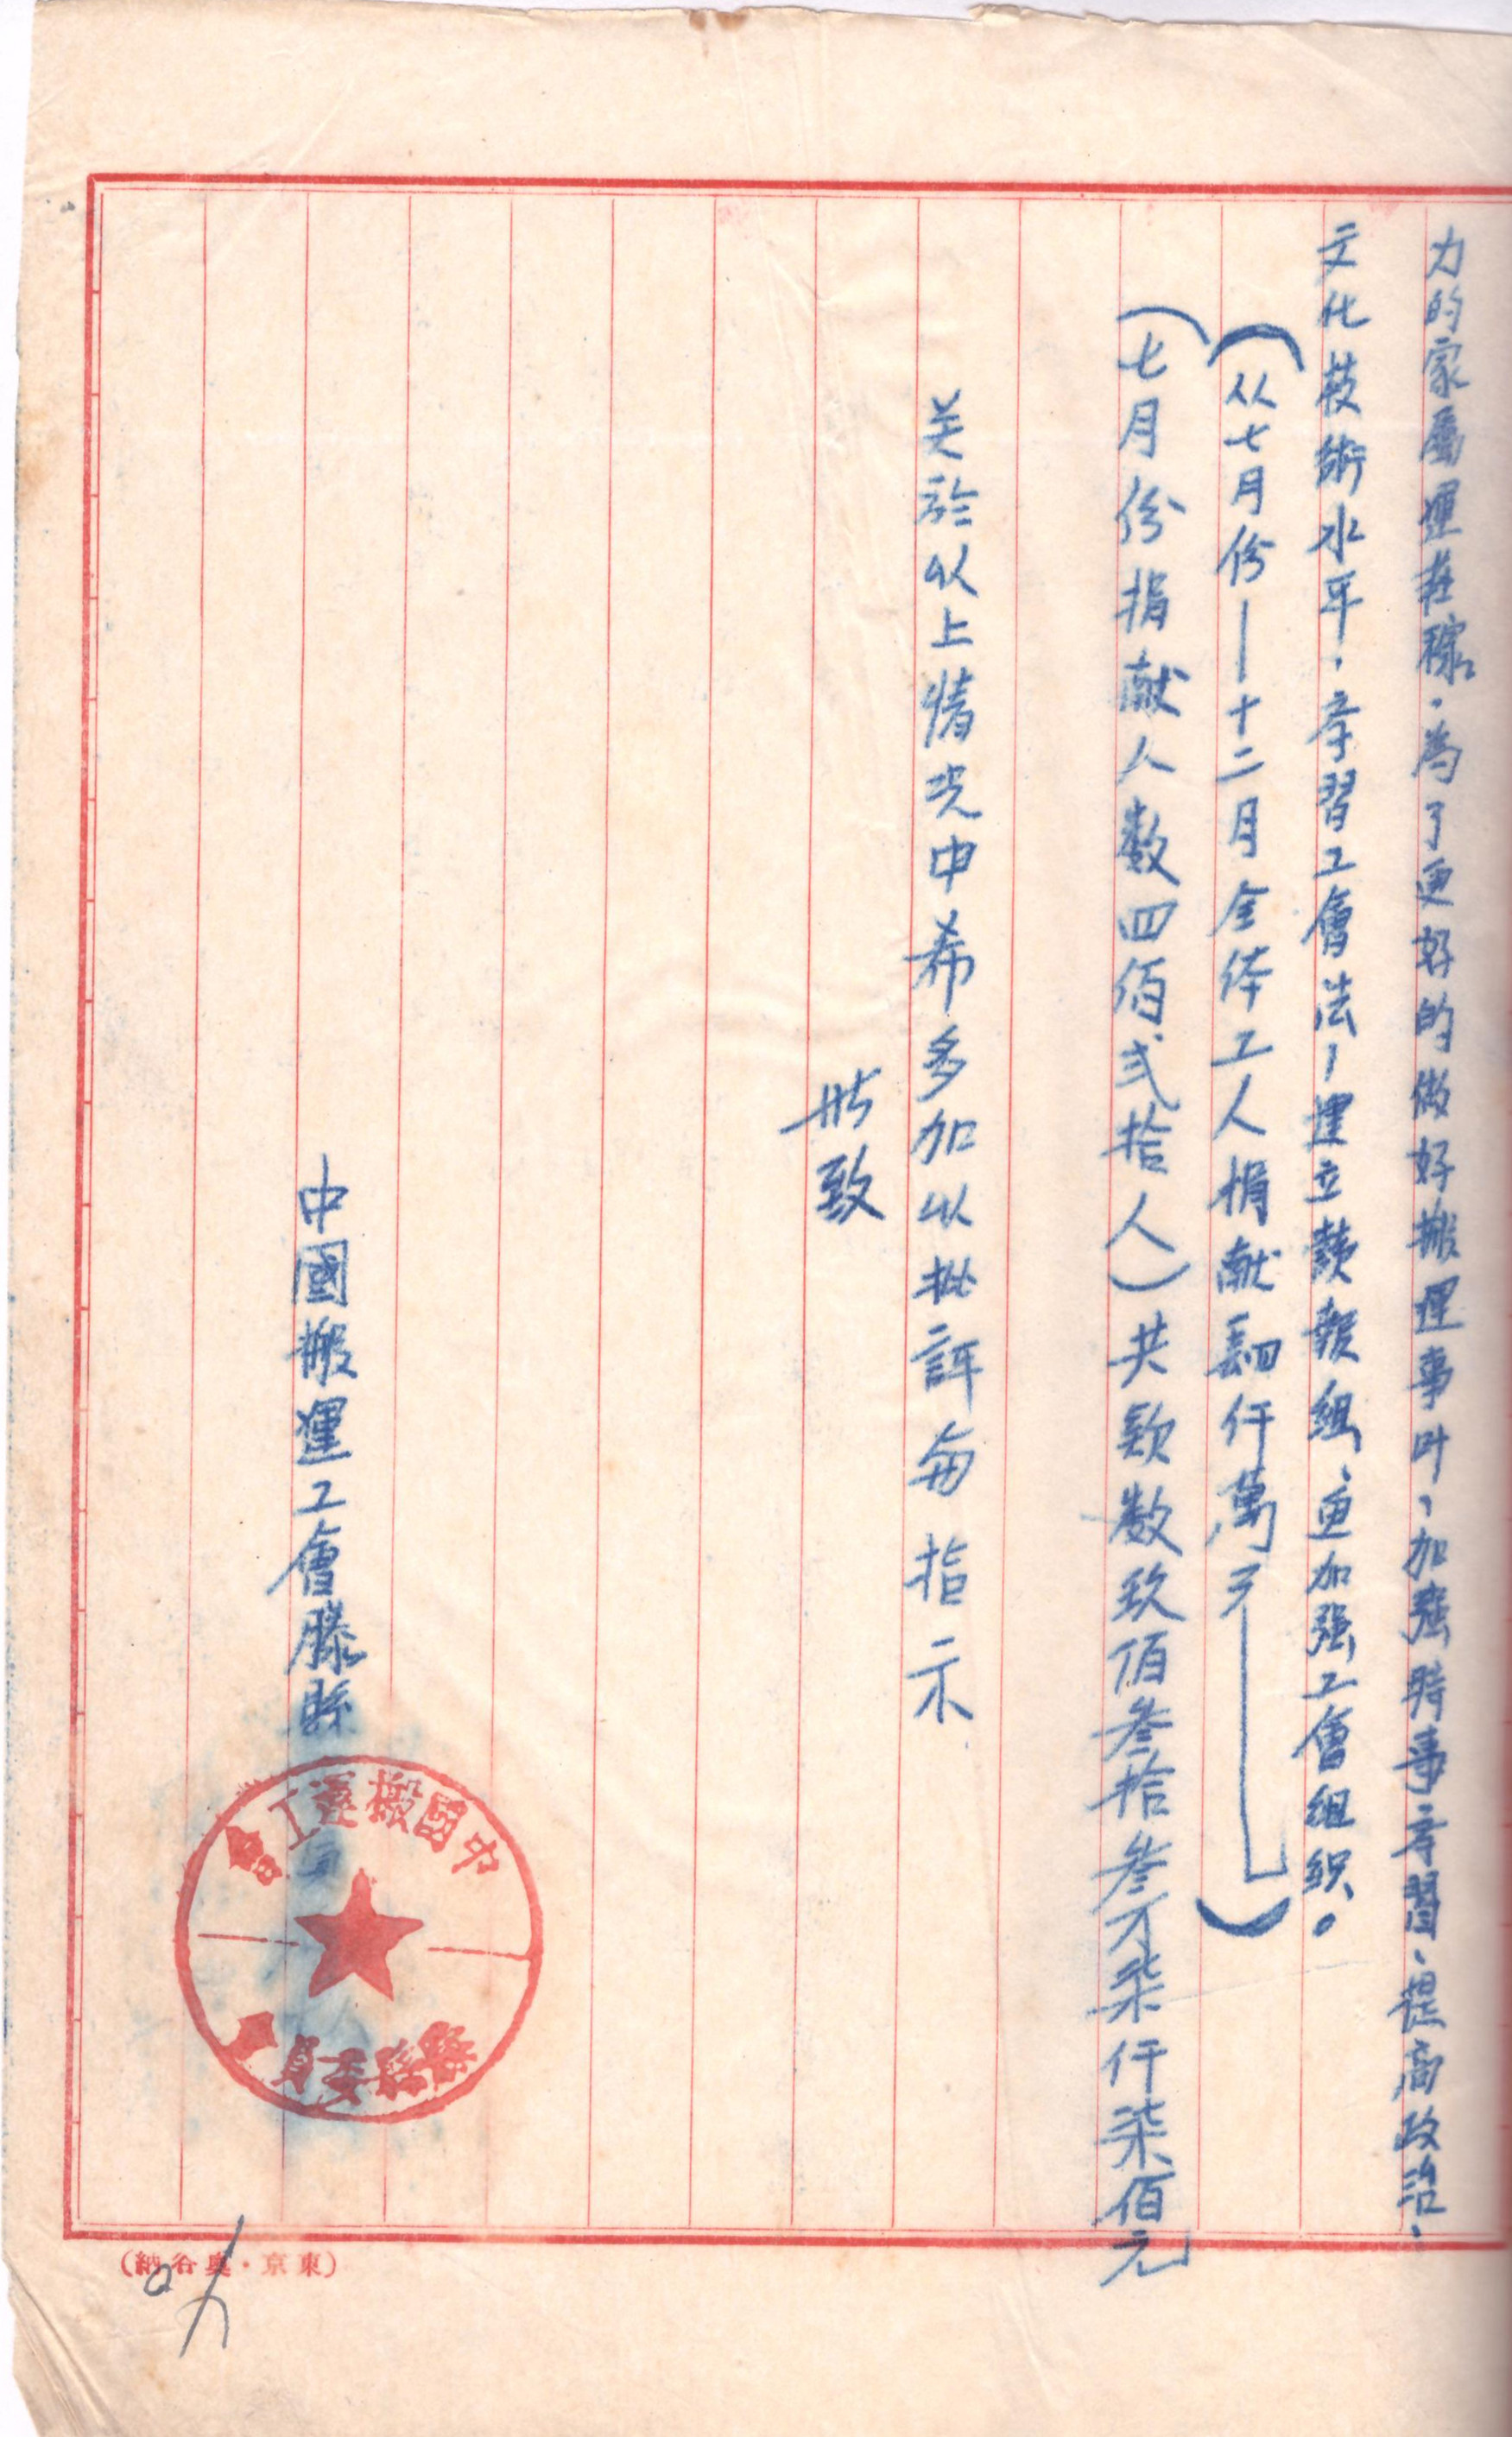 力的家屬運莊稼．為了更好的做好搬運事叶、加强時事学習、提高政治、
文化技術水平、学習工會法，建立讀報組、更加强工會組织。
（从七月份——十二月全体工人捐献 仟萬元——）
（七月份捐献人数四佰弍拾人）共款数玖佰叁拾叁万柒仟柒佰元
关於以上情况中希多加以批評每指示
此致
中國搬運工會滕縣
中國搬運工會
滕縣委員
（東京・奥谷納）